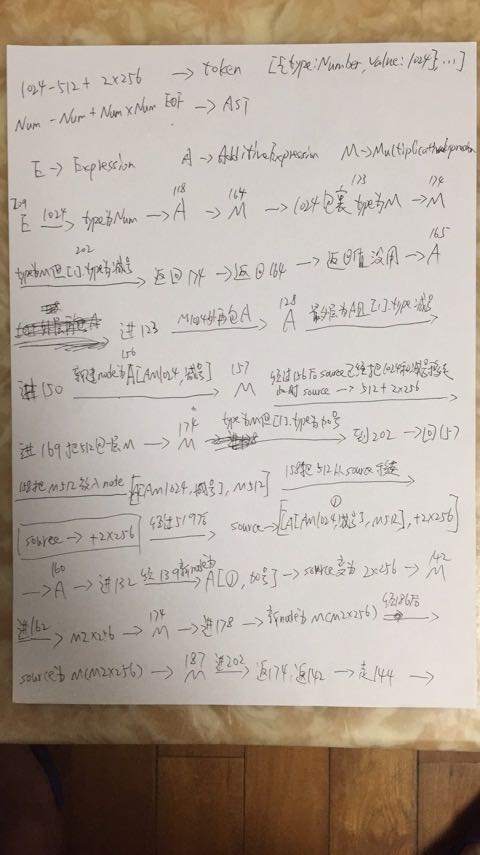 1024-512+2×256 → token [{type:Number, value:1024},...]
Num - Num + Num × Num EOF → AST
E → Expression A → AdditiveExpression M → MultiplicativeExpression
209 E 1024→ type为Num → 118 A → 164 M → 1024包裹 173 type为M → 174 M
type为M但[1].type为减号 202 → 返回174 → 返回164 → 返回值没用 → 165 A
进123 M1024外再包A → 128 A 最外层为A且[1].type减号 →
进150 新建node为A[AM1024,减号] 156 → 157 M 经过156后source已经把1024和减号 此时source → 512+2×256
进169把512包一层M → 174 M type为M但[1].type为加号 → 到202 → 回157
158把M512放入node [A[AM1024,减号], M512] 158把512从source →
source → +2×256 经过159后 → source→[A[AM1024,减号], M512], +2×256] ①
→ 160 A → 进132 经139新node为 → A[①, 加号] → source变为2×256 → 142 M
进162 → M2×256 → 174 M → 进178 → 新node为M(M2×256) 经186后 →
source为M(M2×256) → 187 M 进202 → 返174,返142 → 走144 →